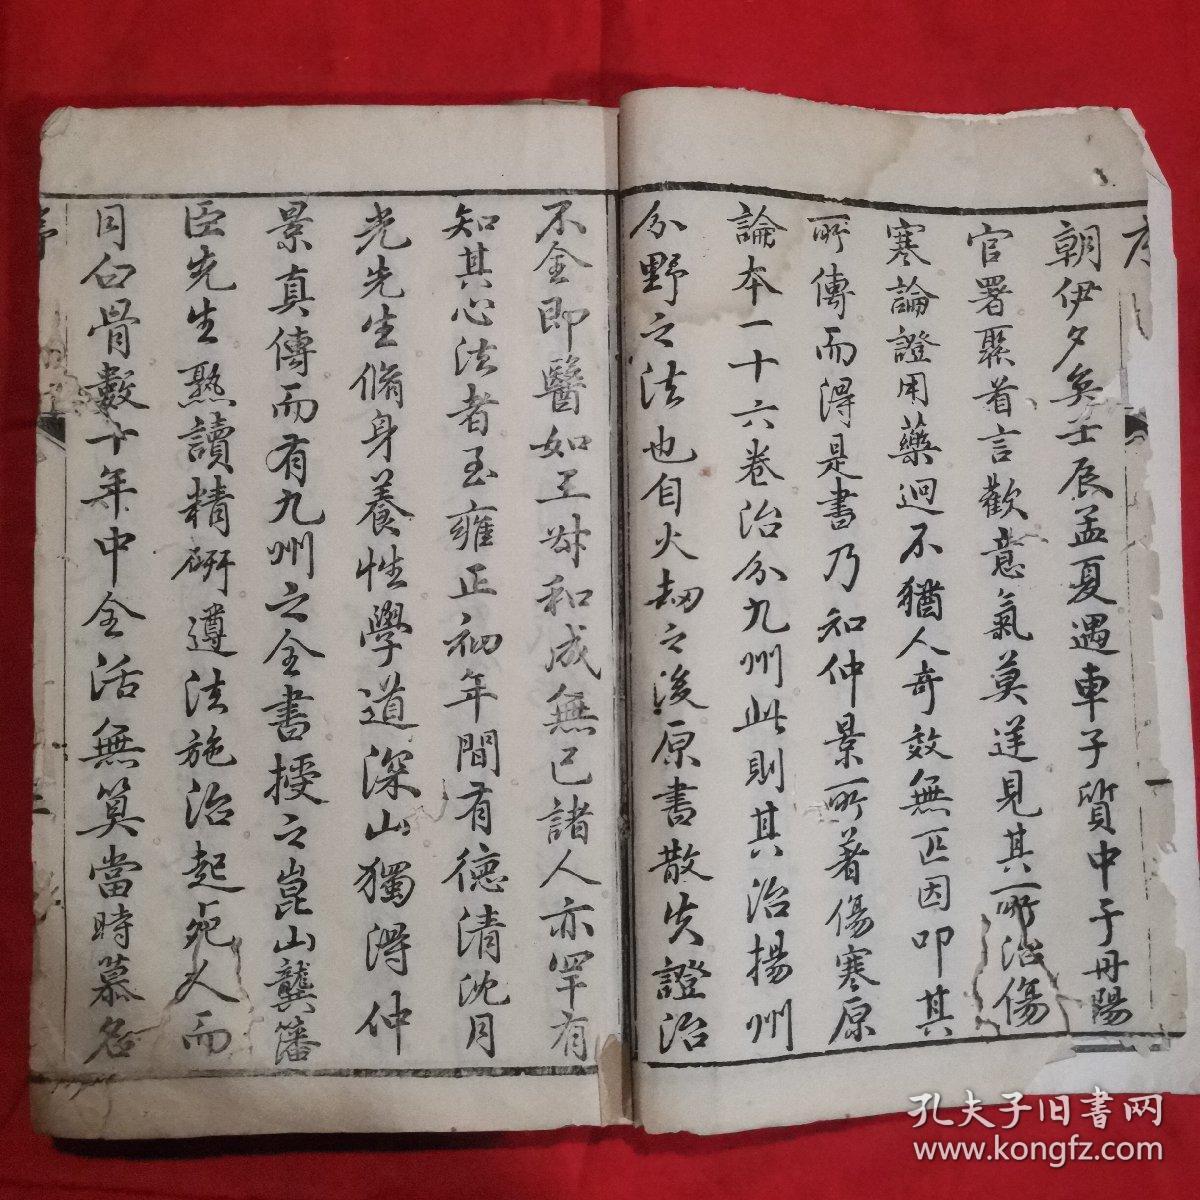 朝伊夕矣壬辰孟夏遇車子質中于丹陽
官署聚首言歡意氣莫逆見其所治傷
寒論證用藥迥不猶人奇效無匹因叩其
所傳而得是書乃知仲景所著傷寒原
論本一十六卷治分九州此則其治揚州
分野之法也自火劫之後原書散失證治
不全即醫如王叔和成無已諸人亦罕有
知其心法者至雍正初年間有德清沈月
光先生脩身養性學道深山獨得仲
景真傳而有九州之全書授之崑山龔藩
臣先生熟讀精研遵法施治起死人而
肉白骨數十年中全活無算當時慕名
孔夫子旧書网
www.kongfz.com